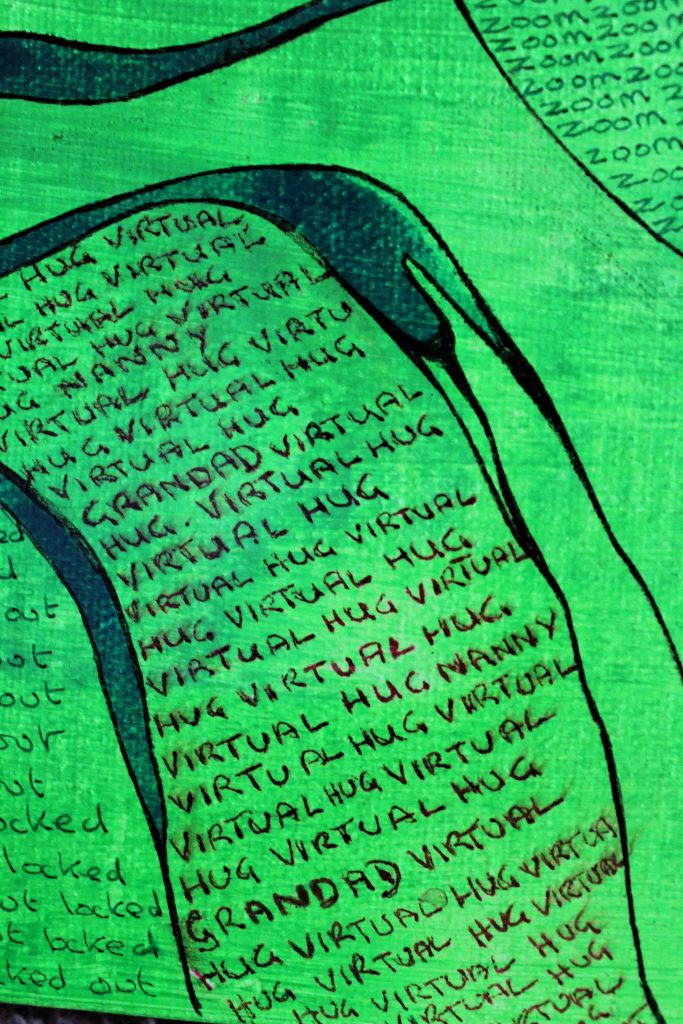 ZOOM ZOOM
ZOOM ZOOM
ZOOM ZOOM
ZOOM ZOO
ZOOM ZO
ZOOM Z
ZOOM
ZOOM
ZOO
ZO
HUG VIRTUAL
HUG VIRTUAL
VIRTUAL HUG
HUG VIRTUAL
NANNY
VIRTUAL HUG VIRTU
HUG VIRTUAL HUG
VIRTUAL HUG
GRANDAD VIRTUAL
HUG. VIRTUAL HUG
VIRTUAL HUG
VIRTUAL HUG VIRTUAL
HUG VIRTUAL HUG
VIRTUAL HUG VIRTUAL
HUG VIRTUAL HUG.
VIRTUAL HUG NANNY
VIRTUAL HUG VIRTUAL
VIRTUAL HUG VIRTUAL
HUG VIRTUAL HUG
GRANDAD VIRTUAL
HUG VIRTUAL HUG VIRTUA
HUG VIRTUAL HUG VIRTUAL
HUG VIRTUAL HUG
VIRTUAL HUG
out
out
out
out
out
ocked
locked
out locked
locked
cked out